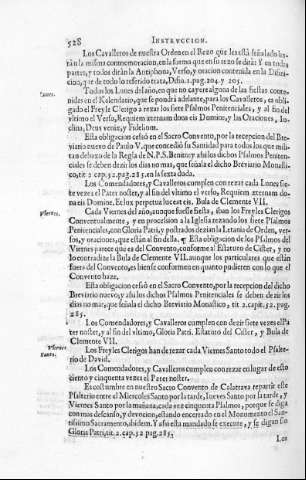 528
INSTRVCCION.
Los Cavalleros de nuestra Orden en el Rezo que les està señalado ha-
ràn la misma commemoracion, en la forma que en su rezo se dirà: Y en todas
partes, y todos diràn la Antiphona, Verso, y oracion contenida en la Difini-
cion, que de todo lo referido trata, Difin.1.pag.204. y 205.
Lunes.
Todos los Lunes del año, en que no cayere alguna de las fiestas conte-
nidas en el Kalendario, que se pondrà adelante, para los Cavalleros, es obli-
gado el Freyle Clerigo à rezar los siete Psalmos Penitenciales, y al fin del
vltimo el Verso, Requiem æternam dona eis Domine, y las Oraciones, In-
clina, Deus veniæ, y Fidelium.
Esta obligacion cessò en el Sacro Convento, por la recepcion del Bre-
viario nuevo de Paulo V. que concediò su Santidad para todos los que mili-
tan debaxo de la Regla de N.P.S. Benito; y aſsi los dichos Psalmos Peniten-
ciales se deben dezir los dias no mas, que señala el dicho Breviario Monasti-
co, tit. 2. cap. 32. pag. 285. en la sexta duda.
Los Comendadores, y Cavalleros cumplen con rezar cada Lunes sie-
te vezes el Pater noster, y al fin del vltimo el verso, Requiem æternam do-
na eis Domine. Et lux perpetua luceat eis. Bula de Clemente VII.
Viernes.
Cada Viernes del año, aunque fuesse fiesta, iban los Freyles Clerigos
Conventualmente, y en procession à la Iglesia rezando los siete Psalmos
Penitenciales, con Gloria Patri, y postrados dezian la Letania de Orden, ver-
sos, y oraciones, que estàn al fin della. ¶ Esta obligacion de los Psalmos del
Viernes parece que es del Convento, conforme al Estatuto de Cister, y no
lo contradize la Bula de Clemente VII. aunque los particulares que estàn
fuera del Convento, es bien se conformen en quanto pudieren con lo que el
Convento haze.
Esta obligacion cessò en el Sacro Convento, por la recepcion del dicho
Breviario nuevo, y aſsi los dichos Psalmos Penitenciales se deben dezir los
dias no mas, que señala el dicho Breviario Monastico, tit. 2. capit. 32. pag.
285.
Los Comendadores, y Cavalleros cumplen con dezir siete vezes el Pa-
ter noster, y al fin del vltimo, Gloria Patri. Estatuto del Cister, y Bula de
Clemente VII.
Viernes Santo.
Los Freyles Clerigos han de rezar cada Viernes Santo todo el Psalte-
rio de David.
Los Comendadores, y Cavalleros cumplen con rezar en lugar de esto
ciento y cinquenta vezes el Pater noster.
Es costumbre en nuestro Sacro Convento de Calatrava repartir este
Psalterio entre el Miercoles Santo por la tarde, Jueves Santo por la tarde, y
Viernes Santo por la mañana, cada vez cinquenta Psalmos, porque se diga
con mas descanso, y devocion, estando encerrado en el Monumento el San-
tissimo Sacramento, ibidem. Y aſsi esta mandado se execute, y se digan sin
Gloria Patri, tit. 2. cap. 32 pag. 285.
Los